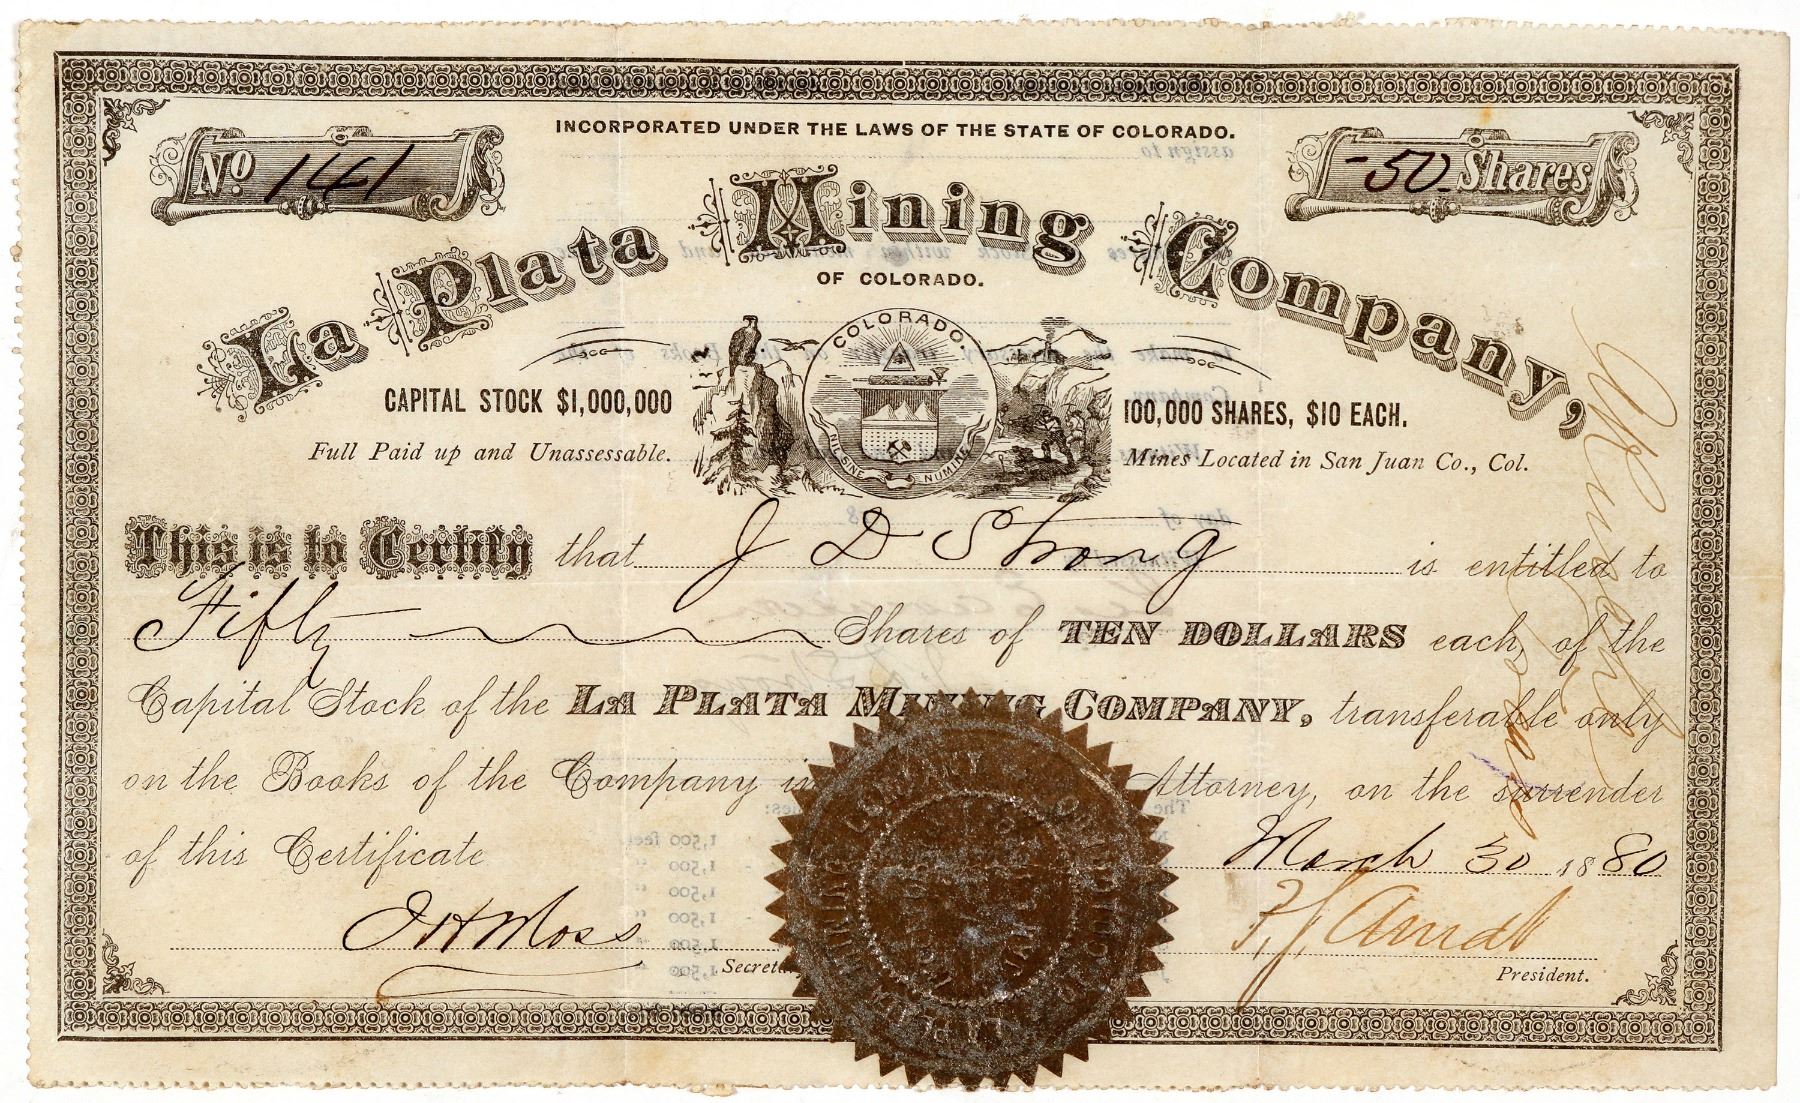 INCORPORATED UNDER THE LAWS OF THE STATE OF COLORADO.
No 141
-50- Shares
La Plata Mining Company,
OF COLORADO.
COLORADO.
NIL SINE NUMINE
CAPITAL STOCK $1,000,000
100,000 SHARES, $10 EACH.
Full Paid up and Unassessable.
Mines Located in San Juan Co., Col.
This is to Certify that J D Strong is entitled to
Fifty Shares of TEN DOLLARS each, of the
Capital Stock of the LA PLATA MINING COMPANY, transferable only
on the Books of the Company in Attorney, on the surrender
of this Certificate March 30 1880
J H Moss
Secretary
F. J. Arndt
President.